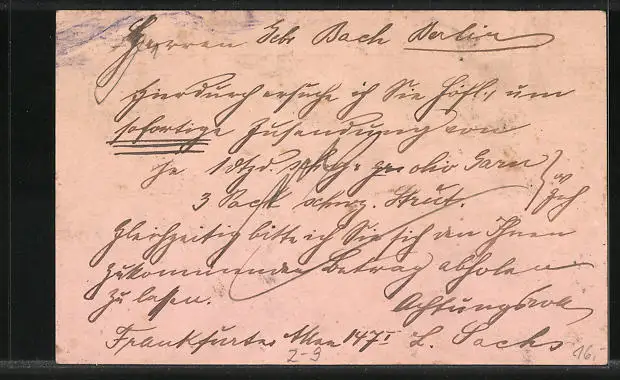 Herren Gebr Bach Berlin
Hierdurch ersuche ich Sie höfl., um
sofortige Zusendung von
je 1 Dtzd. oliv Garn
3 Pack schwz.
Gleichzeitig bitte ich Sie sich den Ihnen
zukommenden Betrag abholen
zu lassen. Achtungsvoll
Frankfurter Allee 147 I L. Sachs
2-9
16.-